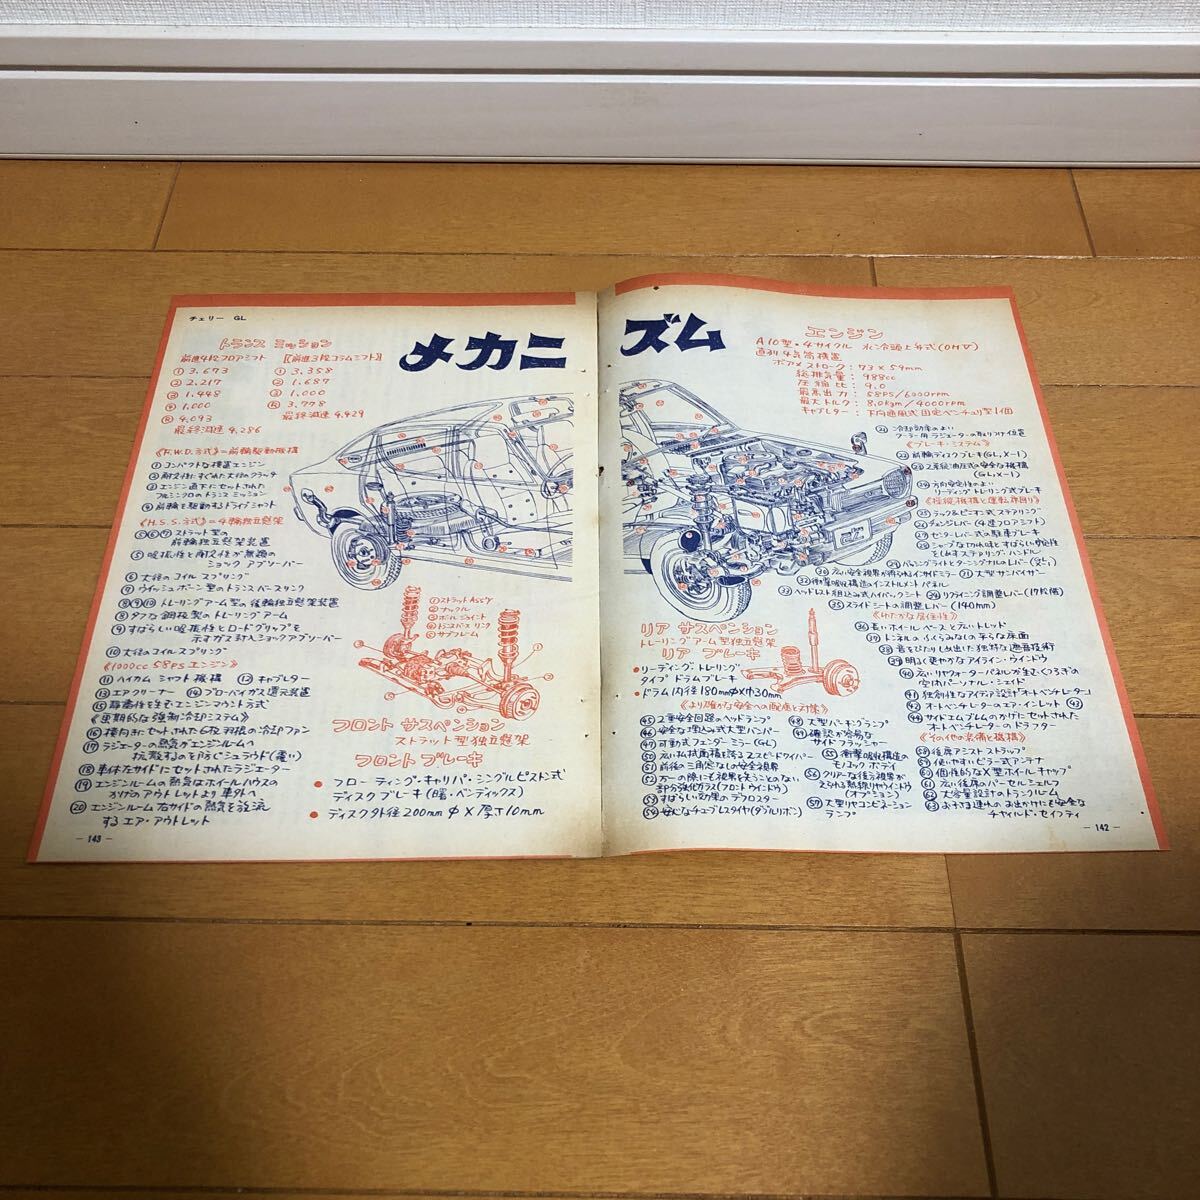 チェリー GL
メカニズム
トランス ミッション
前進4段フロアシフト 〔前進3段コラムシフト〕
① 3.673 ① 3.358
② 2.217 ② 1.687
③ 1.448 ③ 1.000
④ 1.000 ⓡ 3.778
ⓡ 4.093 最終減速 4.429
最終減速 4.286
《F.W.D.方式》=前輪駆動機構
① コンパクトな横置エンジン
② 耐久性にすぐれた大径のクラッチ
③ エンジン直下にセットされた
フルシンクロのトランス ミッション
④ 前輪を駆動するドライブシャフト
《H.S.S.方式》=4輪独立懸架
⑤⑥⑦ ストラット型の
前輪独立懸架装置
⑤ 吸振性と耐久性が無類の
ショック アブソーバー
⑥ 大径のコイル スプリング
⑦ ウィッシュボン型のトランスバースリンク
⑧⑨⑩ トレーリングアーム型の後輪独立懸架装置
⑧ タフな鋼板製のトレーリング アーム
⑨ すばらしい吸振性とロードグリップを
示すガス封入ショックアブソーバー
⑩ 大径のコイルスプリング
《1000cc 58psエンジン》
⑪ ハイカム シャフト機構 ⑫ キャブレター
⑬ エアクリーナー ⑭ ブローバイガス還元装置
⑮ 静粛性を生むエンジンマウント方式
《画期的な強制冷却システム》
⑯ 横向きにセットされた6枚羽根の冷却ファン
⑰ ラジエターの熱気がエンジンルームへ
拡散するのを防ぐシュラウド(覆い)
⑱ 車体左サイドにセットされたラジエーター
⑲ エンジンルームの熱気をホイールハウスの
かげのアウトレットより車外へ
⑳ エンジンルーム右サイドの熱気を放流
する エア・アウトレット
① ストラットAss'y
② ナックル
③ ボールジョイント
④ トランスバース リンク
⑤ サブフレーム
フロント サスペンション
ストラット型独立懸架
フロント ブレーキ
● フローティング・キャリパ・シングルピストン式
ディスクブレーキ(曙・ベンディックス)
● ディスク外径200mmφ×厚さ10mm
— 143 —
エンジン
A10型・4サイクル 水冷頭上弁式(OHV)
直列4気筒横置
ボア×ストローク:73×59mm
総排気量:988cc
圧縮比:9.0
最高出力:58PS/6000rpm
最大トルク:8.0kgm/4000rpm
キャブレター:下向通風式固定ベンチュリ型1個
㉑ 冷却効率のよい
クーラー用ラジエーターの取りつけ位置
《ブレーキ・システム》
㉒ 前輪ディスクブレーキ(GL,X-1)
㉓ 2系統油圧式の安全な機構
(GL,X-1)
㉔ 方向安定性のよい
リーディング トレーリング式ブレーキ
《操縦機構と運転席周り》
㉕ ラック&ピニオン式ステアリング
㉖ チェンジレバー(4速フロアシフト)
㉗ センターレバー式の駐車ブレーキ
㉘ シャープな切れ味とすばらしい安定性
をしめすステアリング・ハンドル
㉙ パッシングライトとターニングシグナルのレバー
㉚ 広い安全視界が得られるインサイドミラー ㉛ 大型サンバイザー
㉜ 衝撃吸収構造のインストルメント パネル
㉝ ヘッドレスト組込み式ハイバックシート ㉞ リクライニング調整レバー(17段階)
㉟ スライドシートの調整レバー(140mm)
《ゆたかな居住性》
㊱ 長いホイールベースとワイドトレッド
㊲ トンネルのふくらみなしの平らな床面
㊳ 音をぴたりしめ出した独特な遮音技術
㊴ 明るく爽やかなアイライン・ウインドウ
㊵ 広いリヤクォーターパネルが生むくつろぎの
室内パーソナル・シェイド
㊶ 独創的なアイデア設計「オートベンチレター」
㊷ オートベンチレターのエア・インレット ㊸
㊹ サイドエムブレムのかげにセットされた
オートベンチレターのドラフター
《その他の装備と機構》
58 後席アシスト ストラップ
59 使いやすいピラー式アンテナ
60 個性的なX型ホイール キャップ
61 広い後席のパーセルシェルフ
62 大容量設計のトランクルーム
63 お子さま連れのお出かけにも安全な
チャイルド・セイフティ
リア サスペンション
トレーリング アーム型独立懸架
リア ブレーキ
● リーディング トレーリング
タイプ ドラムブレーキ
● ドラム内径180mmφ×巾30mm
《より確かな安全への配慮と対策》
㊺ 2重安全回路のヘッドランプ
㊻ 安全な埋込み式大型バンパー
㊼ 可動式フェンダーミラー(GL)
㊽ 大型パーキングランプ
㊾ 確認が容易な
サイド フラッシャー
㊿ 広い払拭面積を誇る2スピードワイパー
51 前後の三角窓なしの安全視界
52 万一の際にも視界を失うことのない
部分強化ガラス(フロント ウインドウ)
53 すばらしい効果のデフロスター
54 安心なチューブレスタイヤ(ダブルリボン)
55 衝撃吸収構造の
モノコック ボデイ
56 クリアーな後方視界が
えられる熱線リヤウインドウ
(オプション)
57 大型リヤコンビネーション
ランプ
— 142 —